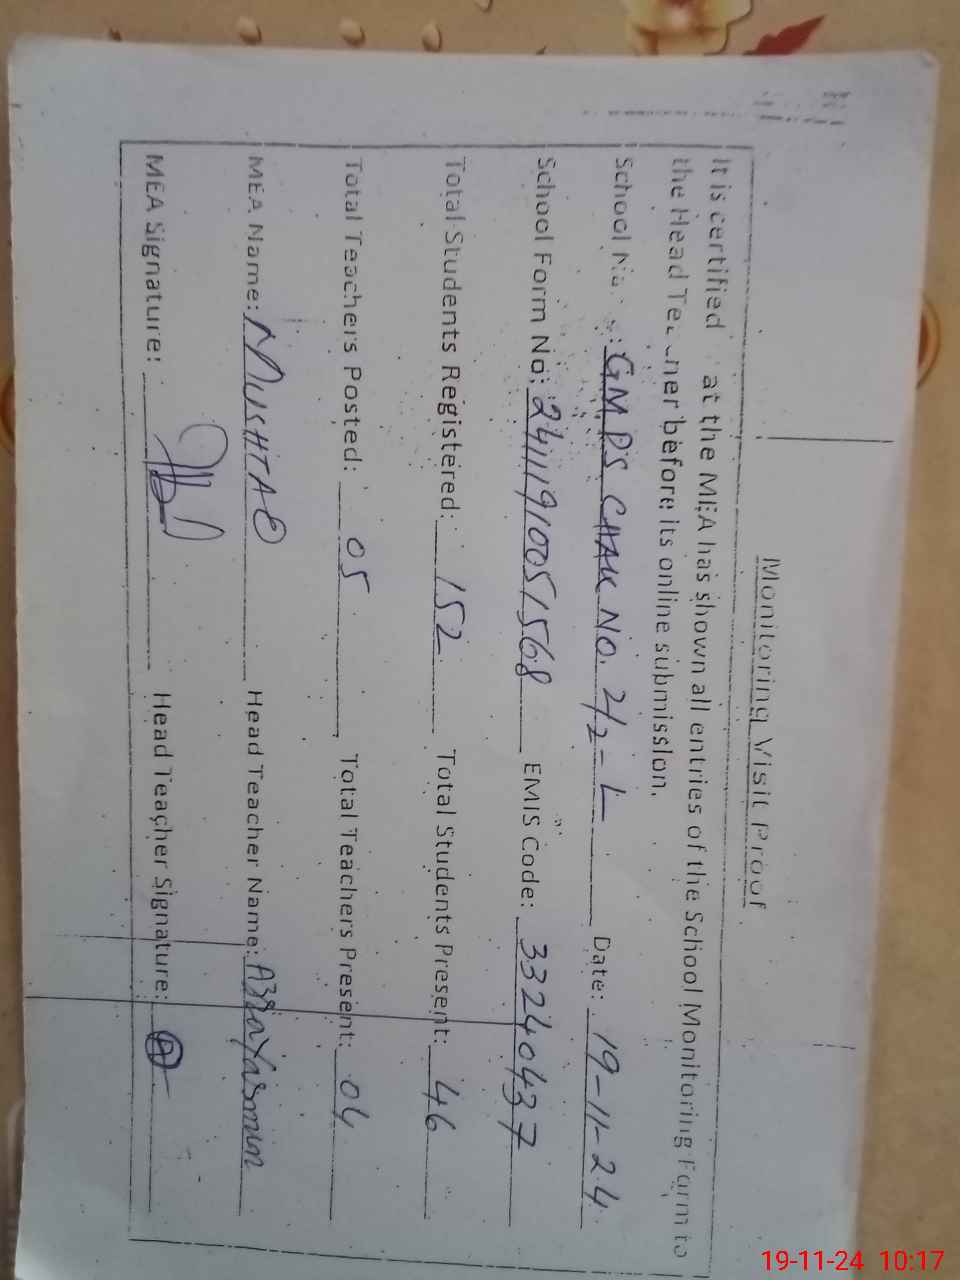 Monitoring Visit Proof
It is certified at the MEA has shown all entries of the School Monitoring Form to
the Head before its online submission.
School : GMPS CHAK NO. 2/2-L Date: 19-11-24
School Form No: 24111910051568 EMIS Code: 33240437
Total Students Registered: 152 Total Students Present: 46
Total Teachers Posted: 05 Total Teachers Present: 04
MEA Name: MUSHTAQ Head Teacher Name: Yasmin
MEA Signature: Head Teacher Signature: A
19-11-24 10:17